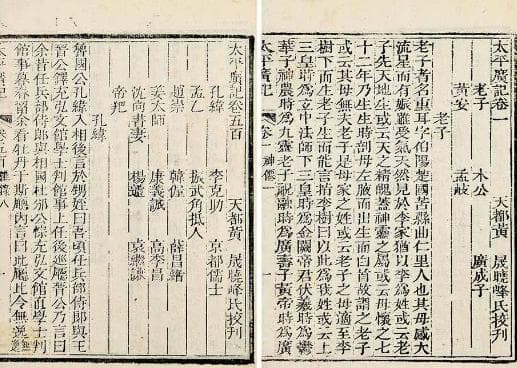 太平廣記卷一
天都黃 晟曉峰氏校刊
老子 木公 廣成子
黃安 孟岐
老子
老子者名重耳字伯陽楚國苦縣曲仁里人也其母感大
流星而有娠雖受氣天然見於李家猶以李為姓或云老
子先天地生或云天之精魄蓋神靈之屬或云母懷之七
十二年乃生生時剖母左腋而出生而白首故謂之老子
或云其母無夫老子是母家之姓或云老子之母適至李
樹下而生老子生而能言指李樹曰以此為我姓或云上
三皇時為玄中法師下三皇時為金闕帝君伏羲時為鬱
華子神農時為九靈老子祝融時為廣壽子黃帝時為廣
太平廣記 卷一 神僊一 一
太平廣記卷五百
天都黃 晟曉峰氏校刊
孔緯 李克助 京都儒士
孟乙 振武角抵人
趙崇 韓偓 薛昌緒
姜太師 康義誠 高季昌
沈尚書妻 楊蘧 袁繼謙
帝羓
孔緯
魯國公孔緯入相後言於甥姪曰吾頃任兵部侍郎與王
晉公鐸充弘文館學士判館事上任後巡廳晉公乃言曰
余昔任兵部侍郎與相國杜邠公悰充弘文館直學士判
館事暮春留余看牡丹于斯廳內言曰此廳比令無逸
太平廣記 卷五百 雜錄八